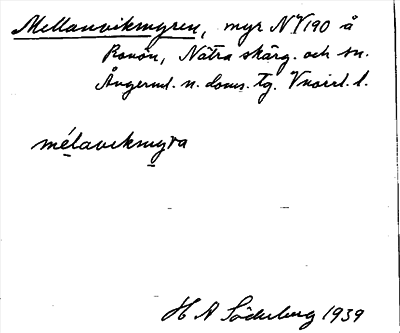 Mellanvikmyren, myr NV 190 å
Ronön, Nätra skärg. och sn.
Ångerml. n. doms. tg. Vnorrl. l.
mélavikmyra
H A Söderberg 1939